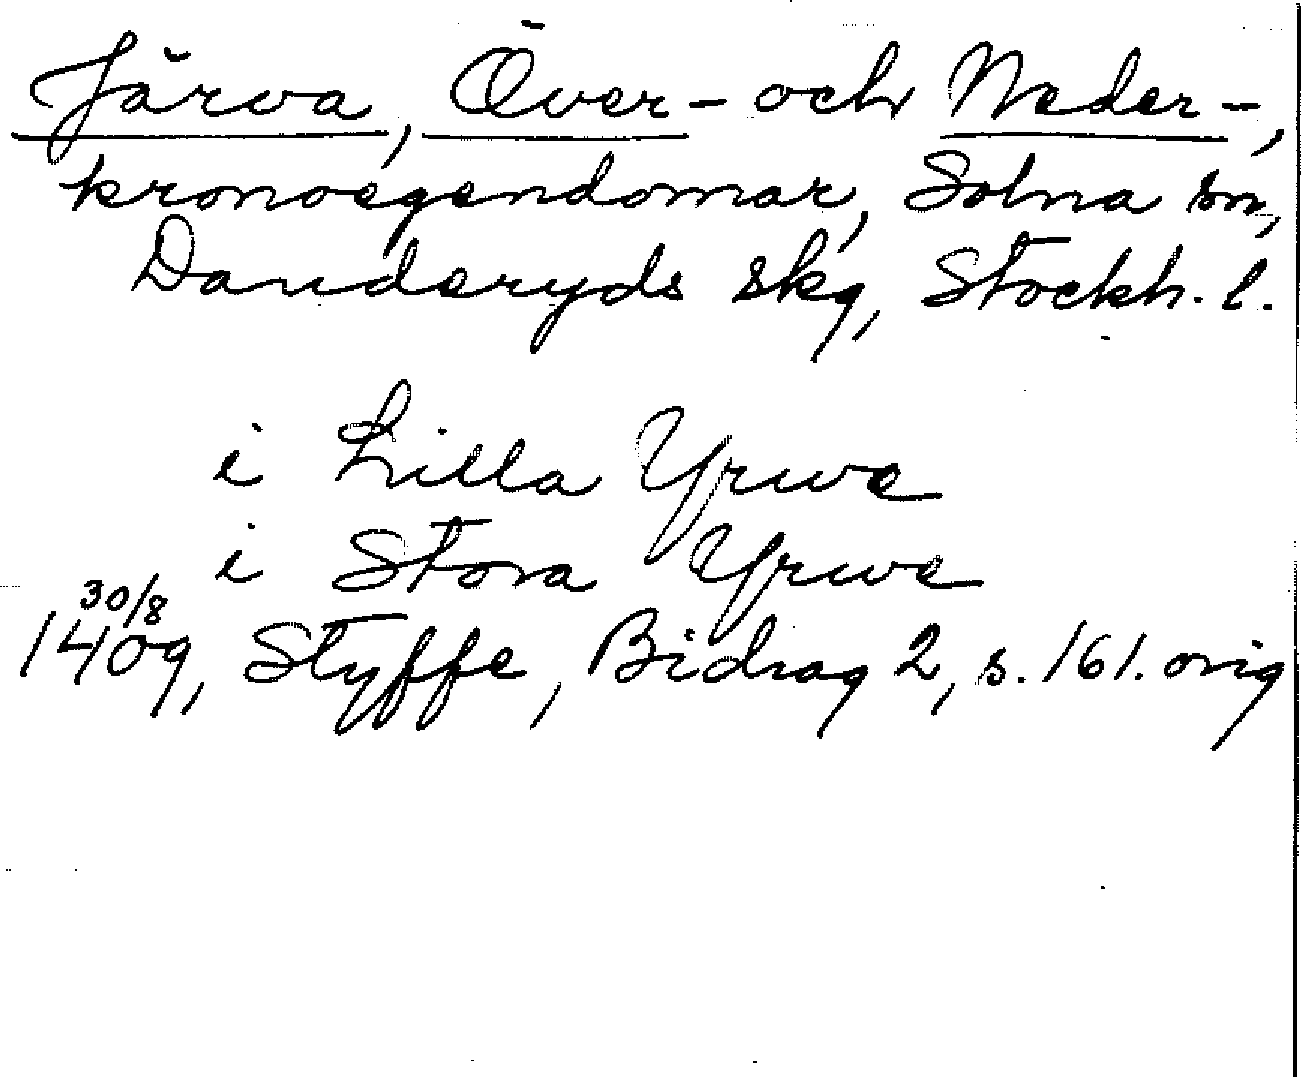 Järva, Över- och Neder-,
kronoegendomar, Solna sn,
Danderyds skg, Stockh. l.
i Lilla Yrwe
i Stora Yrwe
30/8
1409, Styffe, Bidrag 2, s. 161. orig